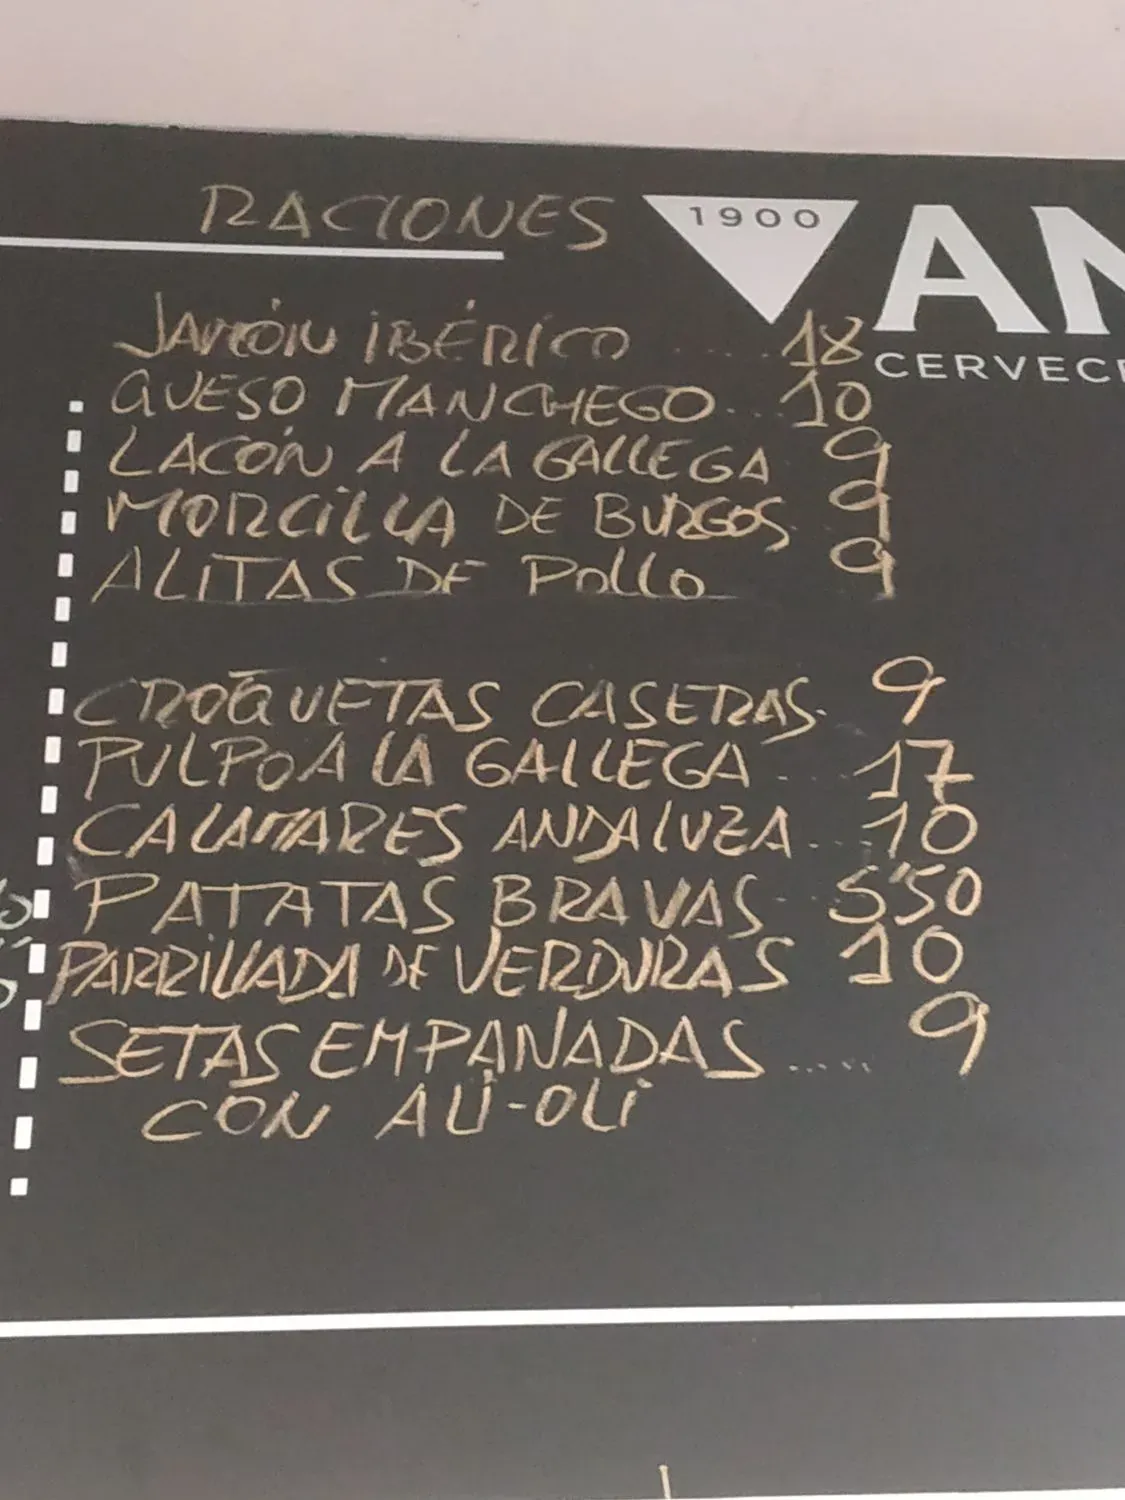 RACIONES
1900
AN
CERVECE
JAMÓN IBÉRICO ..... 18
QUESO MANCHEGO ... 10
LACÓN A LA GALLEGA 9
MORCILLA DE BURGOS. 9
ALITAS DE POLLO 9
CROQUETAS CASERAS. 9
PULPO A LA GALLEGA ... 17
CALAMARES ANDALUZA ... 10
PATATAS BRAVAS .. 5'50
PARRILLADA DE VERDURAS 10
SETAS EMPANADAS ..... 9
CON ALI-OLI